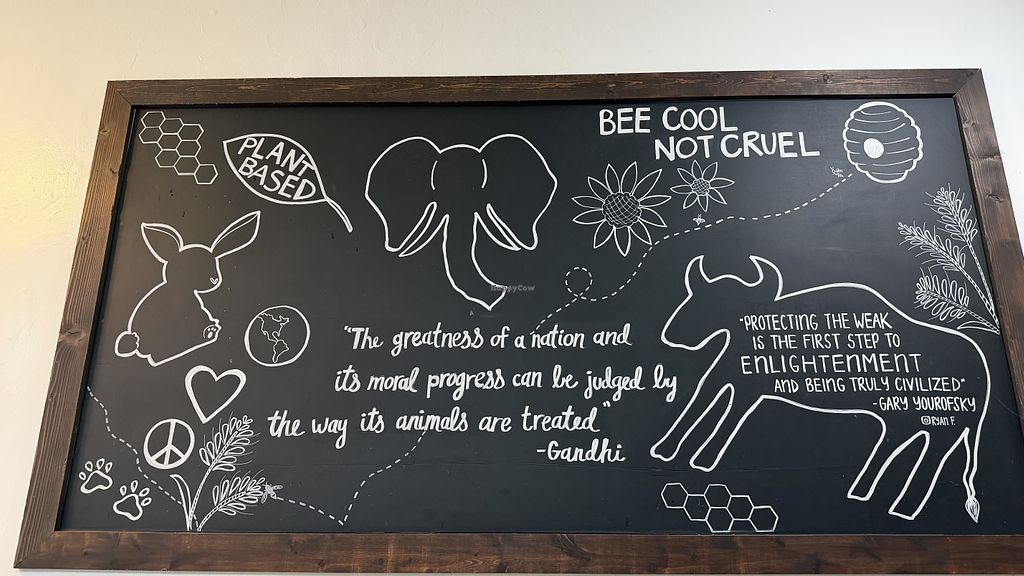 PLANT
BASED
BEE COOL
NOT CRUEL
HappyCow
"The greatness of a nation and
its moral progress can be judged by
the way its animals are treated"
-Gandhi
"PROTECTING THE WEAK
IS THE FIRST STEP TO
ENLIGHTENMENT
AND BEING TRULY CIVILIZED"
-GARY YOUROFSKY
@RYAN F.